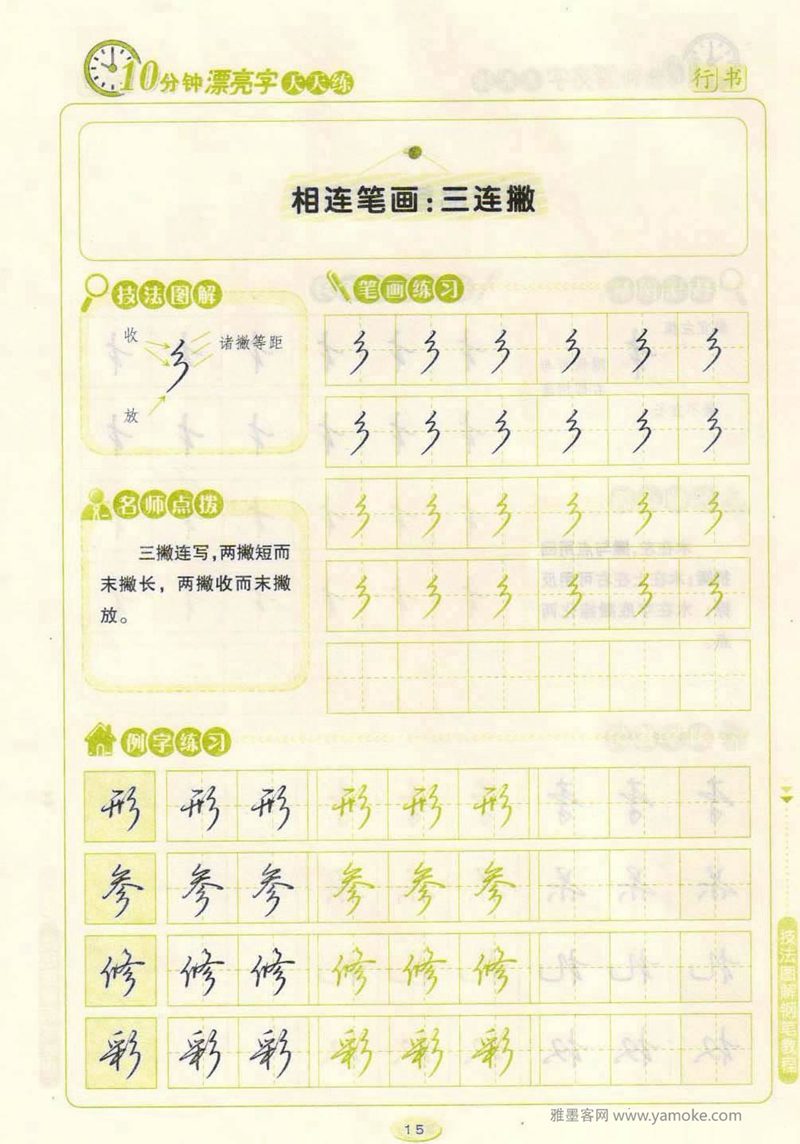 10分钟漂亮字天天练
行书
相连笔画：三连撇
技法图解
收
诸撇等距
放
笔画练习
彡 彡 彡 彡 彡 彡
彡 彡 彡 彡 彡 彡
彡 彡 彡 彡 彡 彡
彡 彡 彡 彡 彡 彡
名师点拨
三撇连写，两撇短而
末撇长，两撇收而末撇
放。
例字练习
形 形 形 形 形 形
参 参 参 参 参 参
修 修 修 修 修 修
彩 彩 彩 彩 彩 彩
技法图解钢笔教程
15
雅墨客网 www.yamoke.com